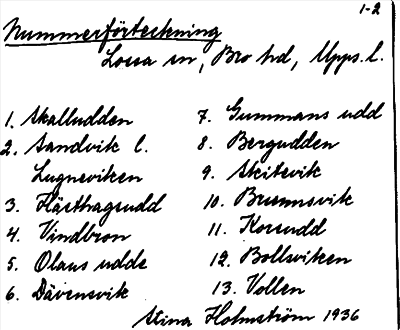 1-2
Nummerförteckning
Lossa sn, Bro hd, Upps. l.
1. Skalludden
2. Sandvik l.
Lugneviken
3. Hästhagsudd
4. Vindbron
5. Olaus udde
6. Dävensvik
7. Gummans udd
8. Bergudden
9. Skitevik
10. Brunnsvik
11. Korsudd
12. Bollsviken
13. Vollen
Stina Holmström 1936